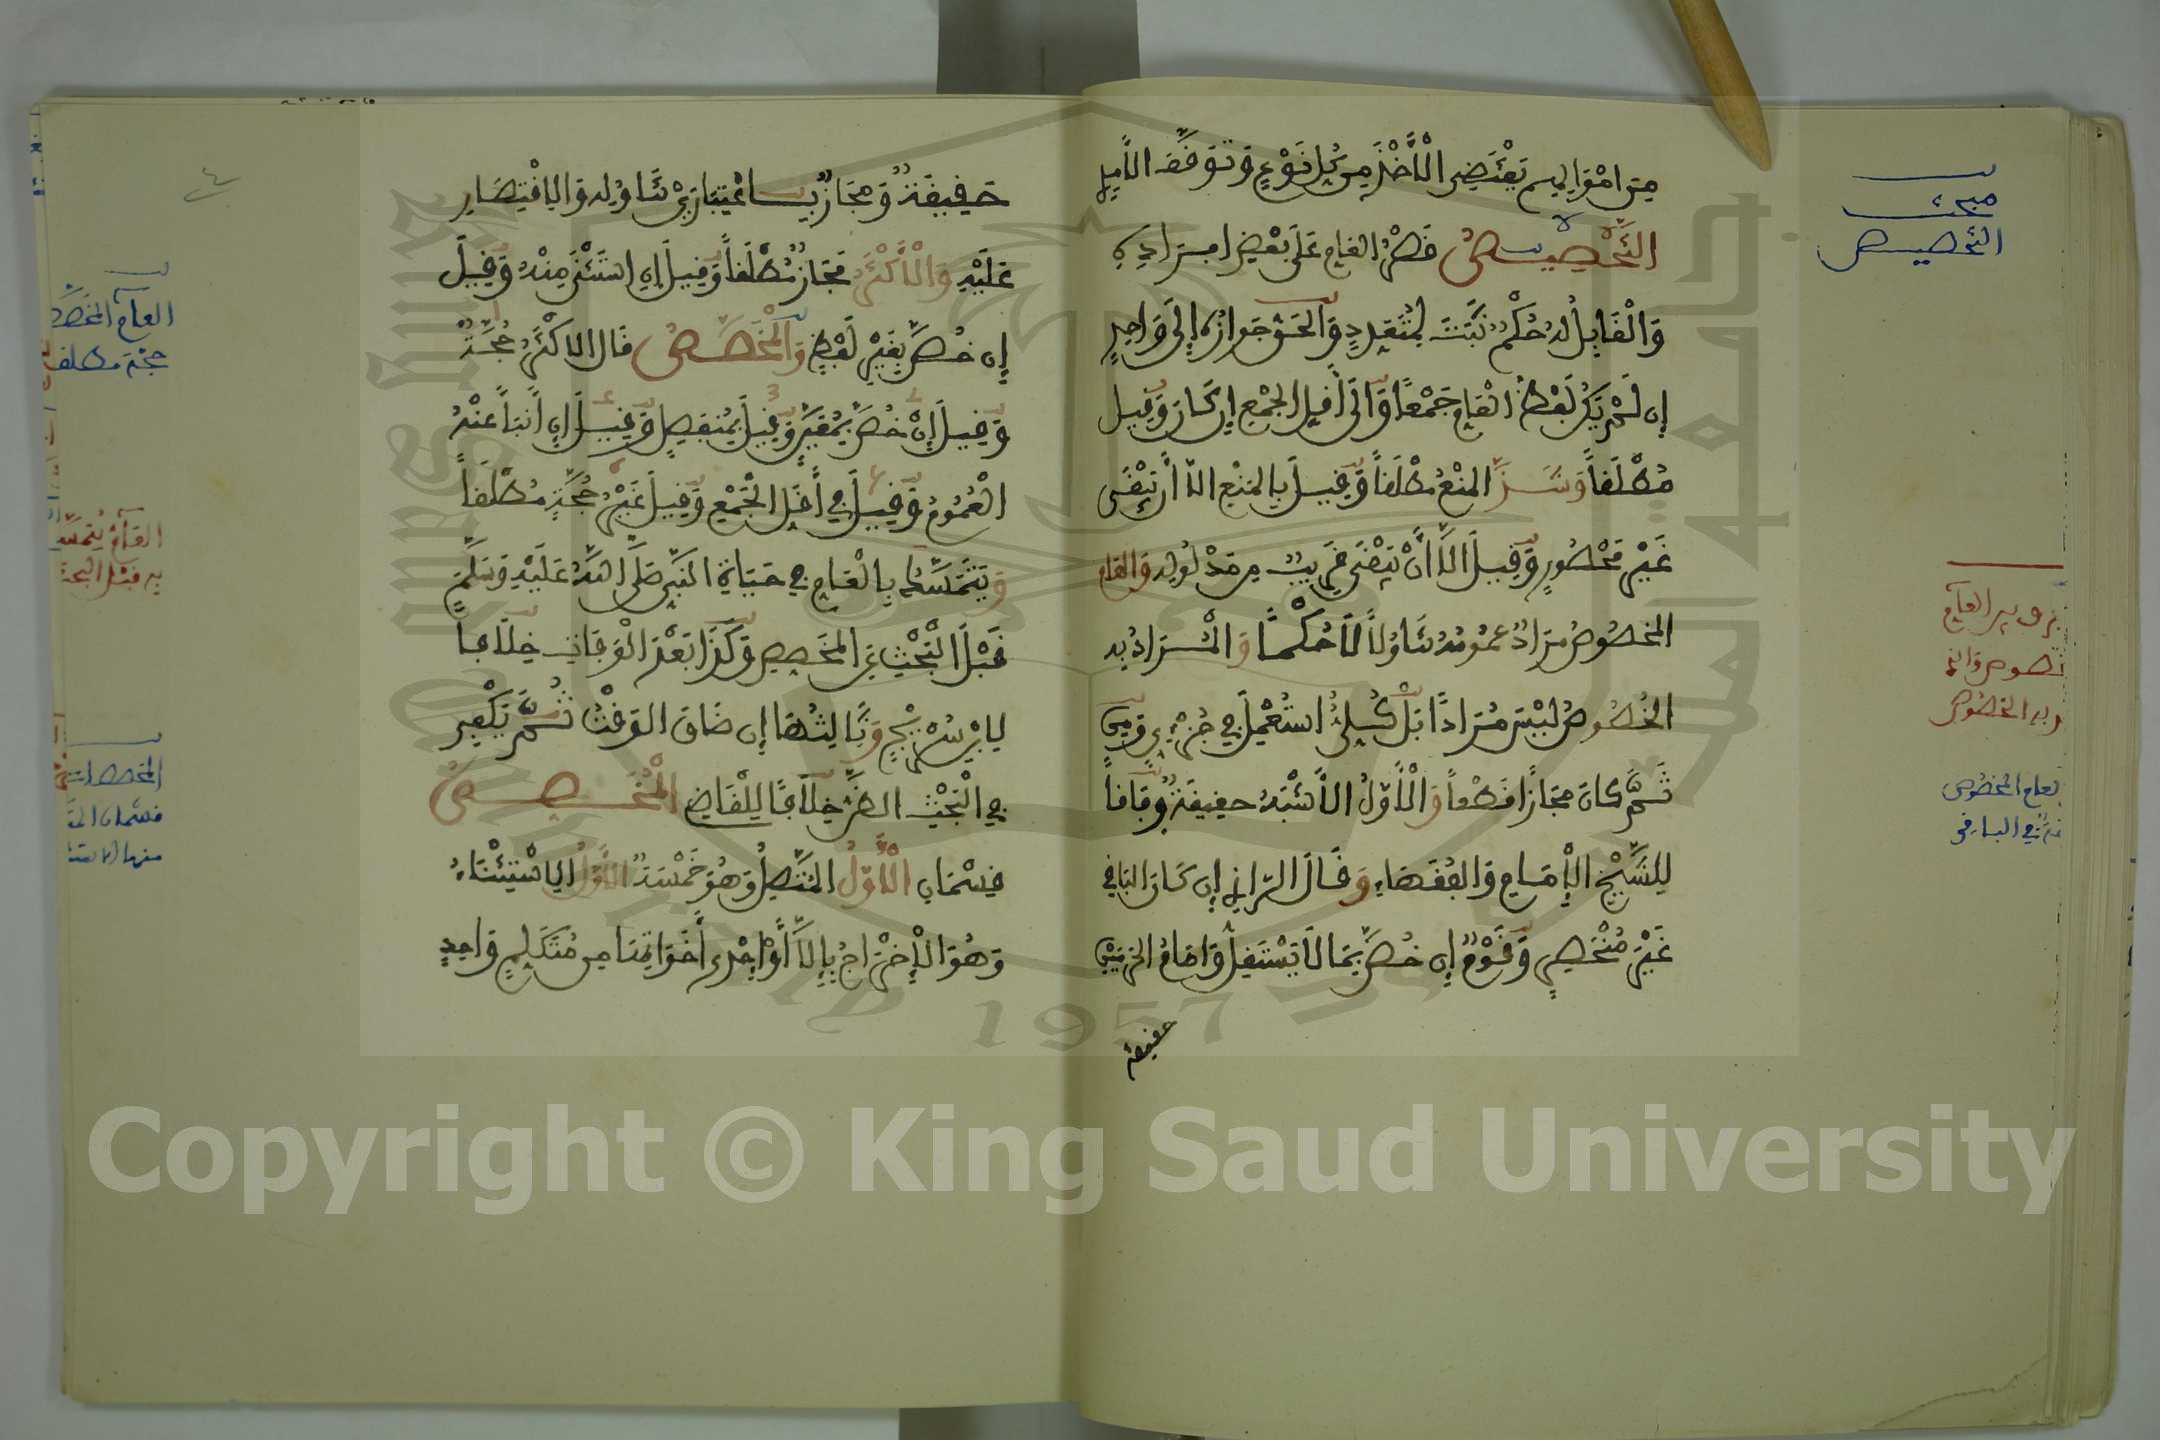 مبحث
التخصيص
مِنَ امْوَالِهِم يَقْتَضِي الْأَخْذَ مِن كُلِ نَوْعٍ وَتَوَقَّفَ الآمِدِي
التَّخْصِيصُ قَصْرُ العَامِ عَلَى بَعْضِ افرَادِهِ
وَالْقَابِلُ لَهُ حُكْمٌ ثَبَتَ لِمُتَعَدِدٍ وَالْحَق جَوَازُه إِلَى وَاحِدٍ
إِن لَمْ يَكُن لَفْظُ العَامِ جَمْعًا وَإِلَى أَقَلِ الجَمْعِ إِن كَانَ وَقِيلَ
مُطْلَقاً وَشَذَّ المَنْعُ مُطْلَقاً وَقِيلَ بِالمَنْعِ الا أَن يَبْقَى
غَيْرُ مَحْصُورٍ وَقِيلَ الَّا أَنْ يَبْقَى قَرِيبٌ مِن مَدْلُولِهِ وَالعَامُ
المَخصُوصُ مُرَادٌ عمُومُهُ تَنَاوُلاً لَا حُكْمًا وَالْمُرَادُ بِهِ
الخُصُوصُ لَيْسَ مُرَادًا بَلْ كُلِيٌّ اسْتُعْمِلَ فِي جُزْئِيٍ وَمِن
ثَمَّ كَانَ مَجَازًا قَطْعاً وَالْأَوَّلُ الْأَشْبَهُ حَقِيقَةٌ وِفَاقاً
لِلشَّيْخِ الْإِمَامِ وَالفُقَهَاءِ وَقَالَ الرَّازِي إِن كَانَ البَاقِي
غَيْرَ مُنْحَصِرٍ وَقَوْمٌ إِن خُصَّ بِمَا لَا يَسْتَقِلُ وَامَامُ الحَرَمَيْنِ
حقيقة
العام المخصوص
في الباقي
حَقِيقَةٌ وَمَجَازٌ بِاعْتِبَارَيْ تَنَاوُلِهِ وَالِاقْتِصَارِ
عَلَيْهِ وَالْأَكْثَرُ مَجَازٌ مُطْلَقاً وَقِيلَ إِنِ اسْتُثْنِيَ مِنْهُ وَقِيلَ
إِن خُصَّ بِغَيْرِ لَفْظٍ وَالْمُخَصَّصُ قَالَ الاكْثَرُ حُجَّةٌ
وَقِيلَ إِنْ خُصَّ بِمُعَيَّنٍ وَقِيلَ بِمُتَصِلٍ وَقِيلَ إِن أَنْبَأَ عَنْهُ
الْعُمُومُ وَقِيلَ فِي أَقَلِ الْجَمْعِ وَقِيلَ غَيْرُ حُجَّةٍ مُطْلَقاً
وَيُتَمَسَّكُ بِالْعَامِ فِي حَيَاةِ النَبِيِّ صَلَّى اللهُ عَلَيْهِ وَسَلَّمَ
قَبْلَ الْبَحْثِ عَنِ المُخَصِصِ وَكَذَا بَعْدَ الْوَفَاةِ خِلَافًا
لِابْنِ سُرَيْجٍ وَثَالِثُهَا إِن ضَاقَ الوَقْتُ ثُمَّ يَكْفِي
فِي الْبَحْثِ الظَنُّ خِلَافًا لِلْقَاضِي الْمُخَصِصُ
قِسْمَانِ الْأَوَّلُ المُتَّصِلُ وَهُوَ خَمْسَةٌ الأَوَّلُ الِاسْتِثْنَاءُ
وَهُوَ الْإِخْرَاجُ بِإِلَّا أَوْ إِحْدَى أَخَوَاتِهَا مِن مُتَكَلِمٍ وَاحِدٍ
العام المخصص
حجة مطلقا
العام يتمسك
به قبل البحث
قسمان